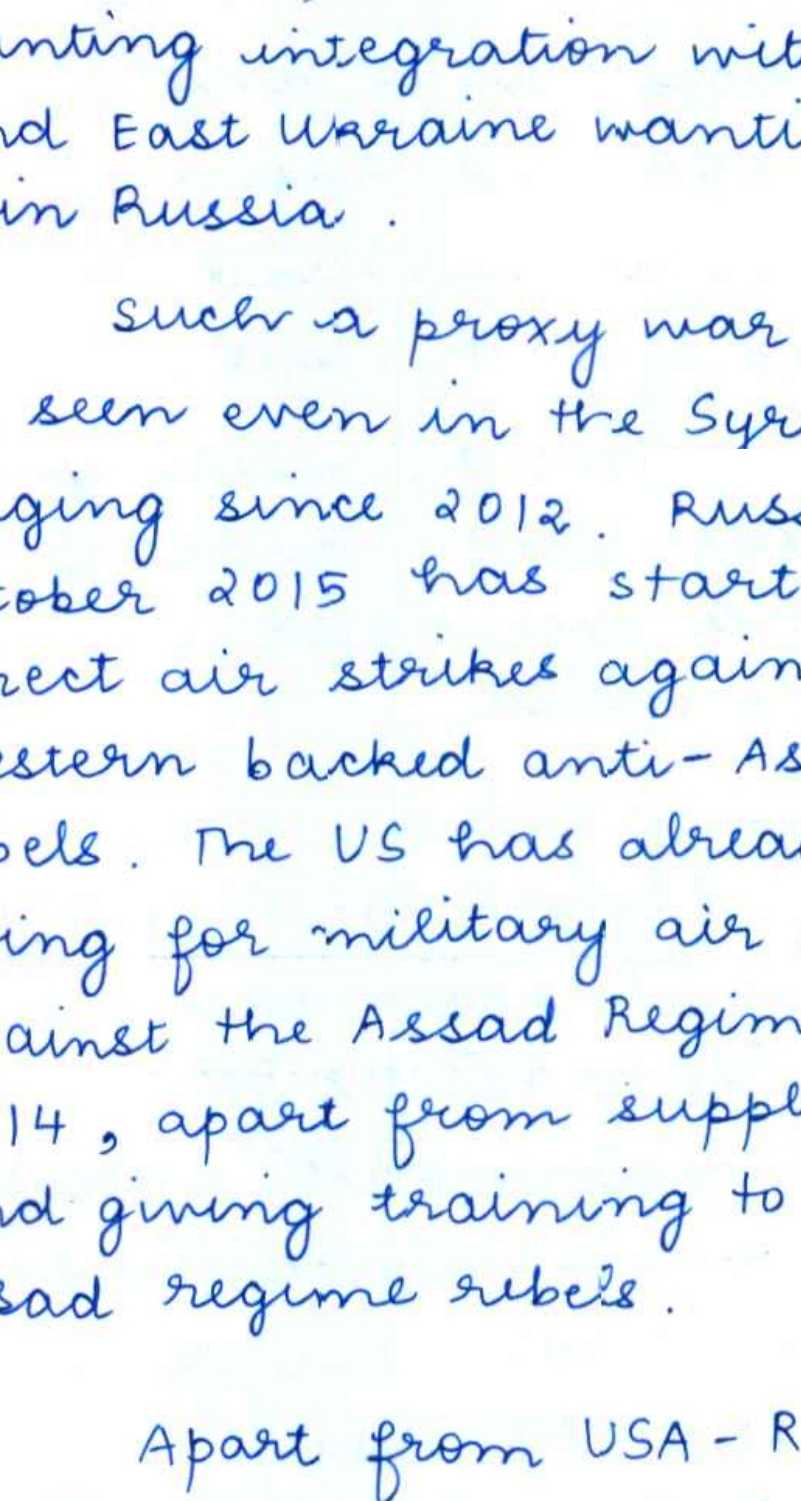 unting integration wit
nd East Ukraine wanti
in Russia .
Such a proxy war
seen even in the Syr
ging since 2012. Russ
tober 2015 has start
rect air strikes again
estern backed anti-As
bels. The US has alrea
ing for military air
ainst the Assad Regim
14, apart from suppl
nd giving training to
sad regime rebels.
Apart from USA - R